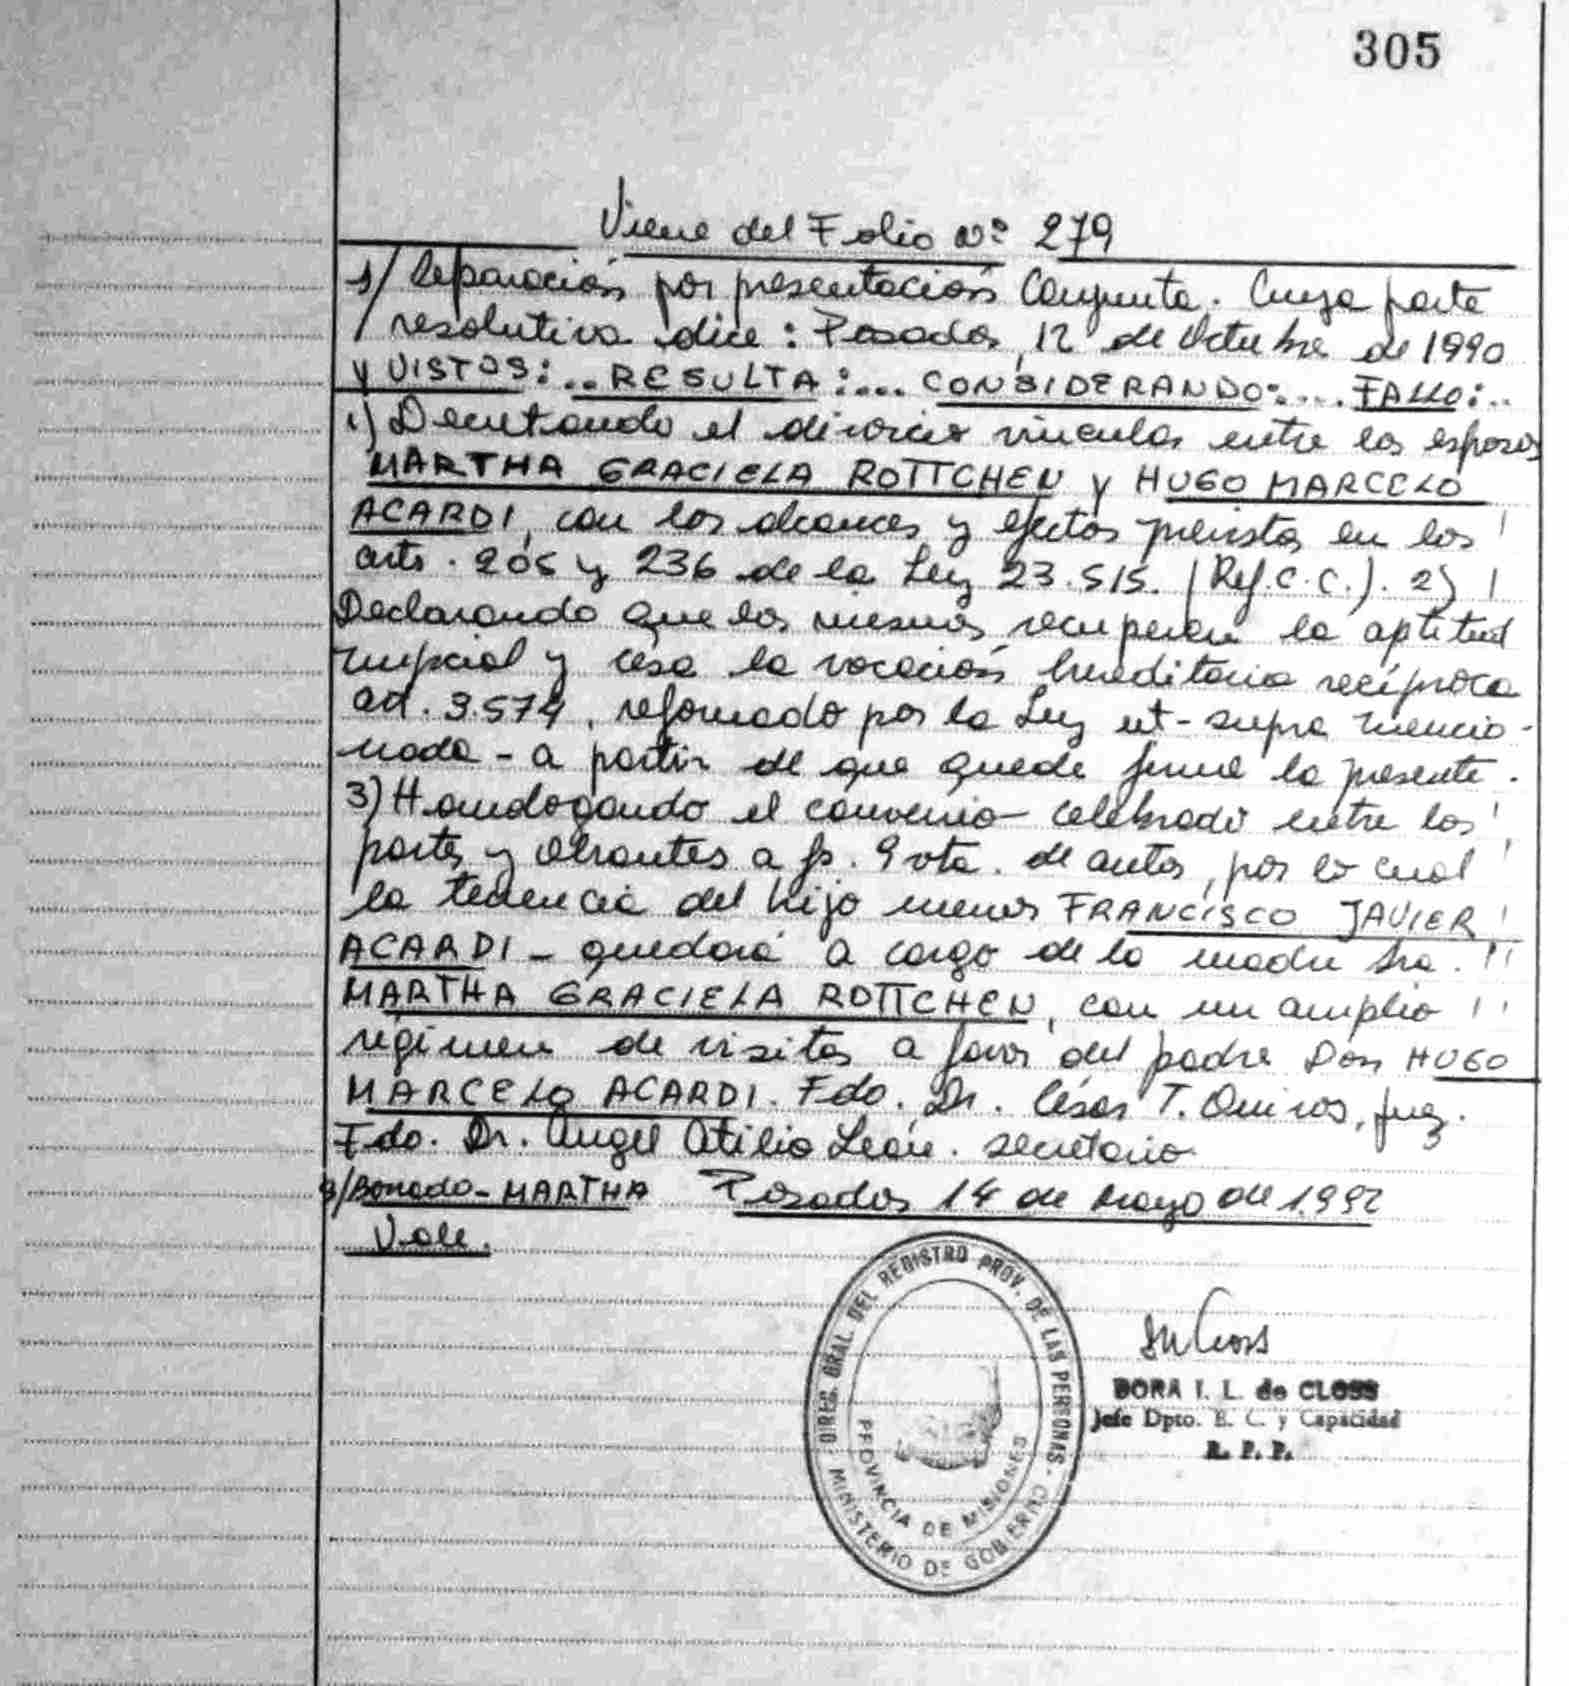 305
Viene del Folio nº 279
s/ Separación por presentación Conjunta. Cuya parte
resolutiva dice: Posadas, 12 de Octubre de 1990
Y VISTOS:.. RESULTA:... CONSIDERANDO:... FALLO:..
1) Decretando el divorcio vincular entre los esposos
MARTHA GRACIELA ROTTCHEN y HUGO MARCELO
ACARDI, con los alcances y efectos previstos en los
arts. 205 y 236 de la Ley 23.515. (Ref. C. C.). 2)
Declarando que los mismos recuperan la aptitud
nupcial y cesa la vocación hereditaria recíproca
art. 3.574, reformado por la Ley ut-supra mencio-
nada - a partir de que quede firme la presente.
3) Homologando el convenio celebrado entre las
partes y obrantes a fs. 9 vta. de autos, por lo cual
la tenencia del hijo menor FRANCISCO JAVIER
ACARDI - quedará a cargo de la madre Sra.
MARTHA GRACIELA ROTTCHEN, con un amplio
régimen de visitas a favor del padre Don HUGO
MARCELO ACARDI. Fdo. Dr. César T. Quiros, Juez.
Fdo. Dr. Angel Atilio León. secretario
s/Borrado - MARTHA Posadas 14 de Mayo de 1.992
Vale.
DIREC. GRAL. DEL REGISTRO PROV. DE LAS PERSONAS
PROVINCIA DE MISIONES
MINISTERIO DE GOBIERNO
DORA I. L. de CLOSS
Jefe Dpto. E. C. y Capacidad
R. P. P.